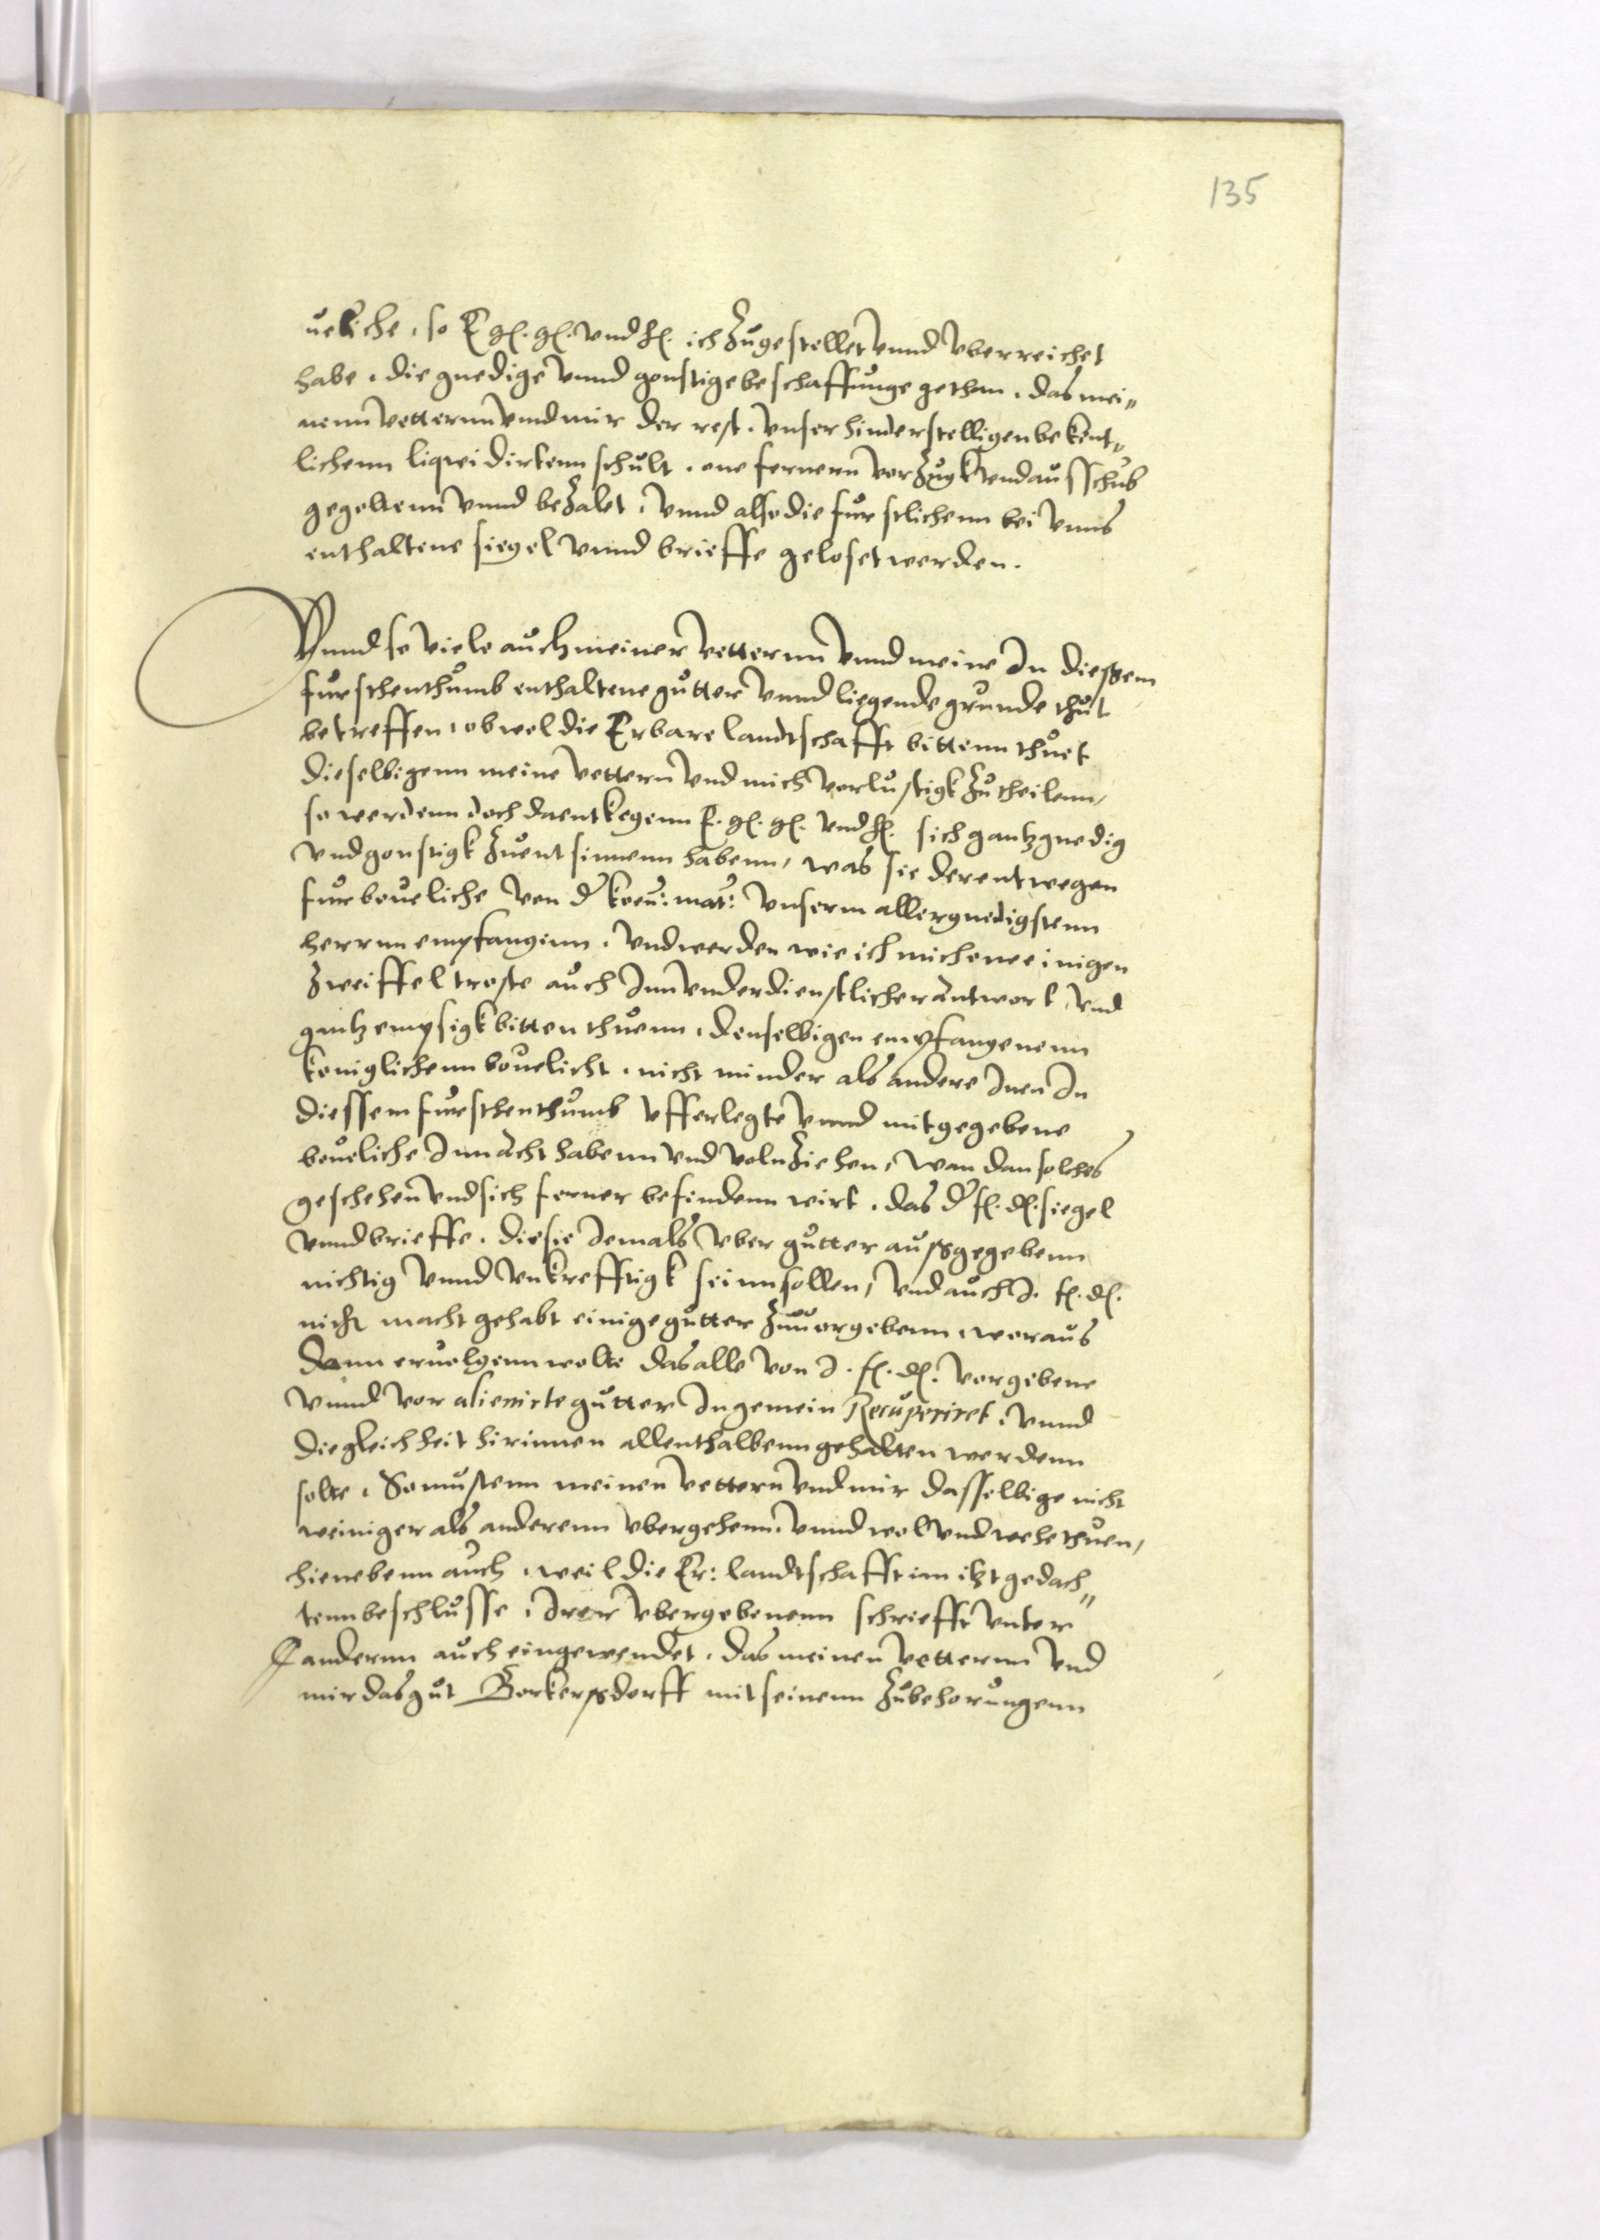 135
ueliche, so E gl. gl. vnd hl. ich zugestellet vnnd vberreichet
habe, die gnedige vnnd gonstige beschaffunge gethan, das mei„
nenn vetternn vnd mir der rest, vnser hinderstelligen bekent„
lichenn liqueidirtenn schult, one fernern verzugk vnd auffschub
gegoltenn vnnd bezalet, vnnd also die furstlichenn bei vnns
enthaltene siegel vnnd brieffe geloset werden.
Vnnd so viele auch meiner vetternn vnnd meine In dießem
furstenthumb enthaltene gutter vnnd liegende grunde thut
betreffen, ob wol die Erbare landtschafft bittenn thuet
dieselbigenn meine vettern vnd mich verlustigk zutheilenn,
so werdenn doch daentkegenn E. gl. gl. vnd hl. sich gantz gnedig
vnd gonstigk zuentsinnenn habenn, was sie derentwegen
fur beueliche von der koen: mat: vnserm allergnedigstenn
herrnn empfangenn, vnd werden wie ich mich one einigen
zweiffel troste auch Inn vnderdienstlicher antwort, vnd
gantz empsigk bitten thuenn, denselbigen empfangenenn
koniglichenn beuelicht, nicht minder als andere Inen In
diessem furstenthumb vfferlegte vnnd mitgegebene
beueliche Inn acht habenn vnd volnziehen, wan dan solches
geschehen vnd sich ferner befindenn wirt, das der fl. dl. siegel
vnnd brieffe, die sie Iemals vber gutter außgegebenn
nichtig vnnd vnkrefftigk sein sollen, vnd auch I. fl. dl.
nicht macht gehabt einige gutter zuuorgebenn, woraus
dann eruolgenn wolte das alle von I. fl. dl. vorgebene
vnnd vor alienirte gutter In gemein Recuperiret, vnnd
die gleichheit hirinnen allenthalbenn gehalten werdenn
solte, So mustenn meinen vettern vnd mir dasselbige nicht
weiniger als anderenn vbergehenn, vnnd wol vnd wehe thuen,
hienebenn auch, weil die Er: landtschafft im itzt gedach„
tenn beschlusse, Irer vbergebenenn schriefft vnter
andernn auch eingewendet, das meinen vetternn vnd
mir das gut Borkerßdorff mit seinenn zubehorungenn